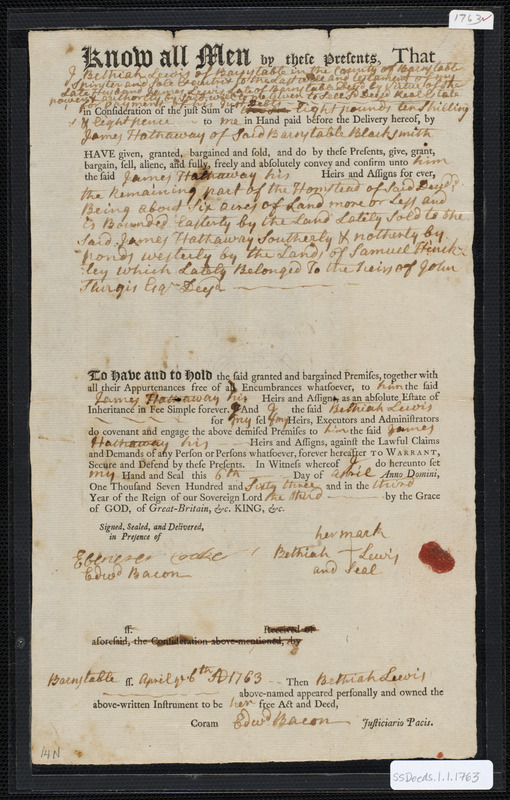 1763
Know all Men by these Presents, That
I Bethiah Lewis of Barnstable in the County of Barnstable
Spinster and Sole Executrix to the Last will and testament of my
Late Husband James Lewis Late of Barnstable Deced by virtue of the
power & authority by said will to me Given to Sell Deceds Real Estate
for payment of her Just Debts
in Consideration of the just Sum of Eight pounds ten shilling
s & Eight pence to me in Hand paid before the Delivery hereof, by
James Hathaway of Said Barnstable Blacksmith
HAVE given, granted, bargained and sold, and do by these Presents, give, grant,
bargain, sell, aliene, and fully, freely and absolutely convey and confirm unto him
the said James Hathaway his Heirs and Assigns for ever,
the Remaining part of the Homstead of Said Deced
Being about Six acres of Land more or Less and
Is Bounded Easterly by the Land Lately Sold to the
Said James Hathaway Southerly & notherly by
ponds westerly by the Lands of Samuel Hinck
ley which Lately Belonged To the Heirs of John
Sturgis Esqr Decd
To Have and to Hold the said granted and bargained Premises, together with
all their Appurtenances free of all Encumbrances whatsoever, to him the said
James Hathaway his Heirs and Assigns, as an absolute Estate of
Inheritance in Fee Simple forever. And I the said Bethiah Lewis
for my sel f my Heirs, Executors and Administrators
do covenant and engage the above demised Premises to him the said James
Hathaway his Heirs and Assigns, against the Lawful Claims
and Demands of any Person or Persons whatsoever, forever hereafter to WARRANT,
Secure and Defend by these Presents. In Witness whereof I do hereunto set
my Hand and Seal this 6th Day of April Anno Domini,
One Thousand Seven Hundred and Sixty three and in the third
Year of the Reign of our Sovereign Lord the third by the Grace
of GOD, of Great-Britain, &c. KING, &c.
Signed, Sealed, and Delivered,
in Presence of
her mark
Bethiah + Lewis
and Seal
Edwd Bacon
ss. Received of
aforesaid, the Consideration above-mentioned, by
Barnstable ss. April ye 6th AD 1763 Then Bethiah Lewis
above-named appeared personally and owned the
above-written Instrument to be her free Act and Deed,
Coram Edwd Bacon Justiciario Pacis.
14N
SSDeeds.1.1.1763